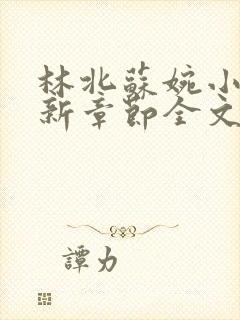 林北蘇婉小
新章節全文
譚力